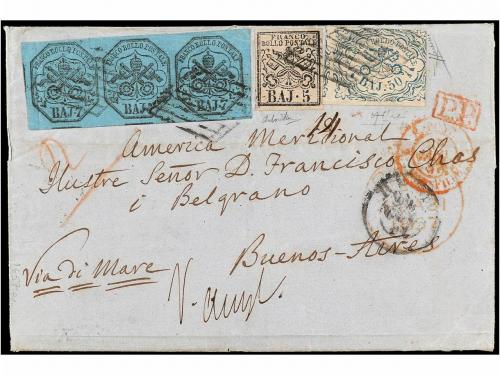 FRANCO BOLLO POSTALE FRANCO BOLLO POSTALE FRANCO BOLLO POSTALE FRANCO BOLLO POSTALE
BAJ. 7 BAJ. 7 BAJ. 7 BAJ. 5 BAJ. 50
P.D.
America Meridional
Ilustre Señor D. Francisco Chas
i Belgrano
Buenos-Aires
Via di Mare